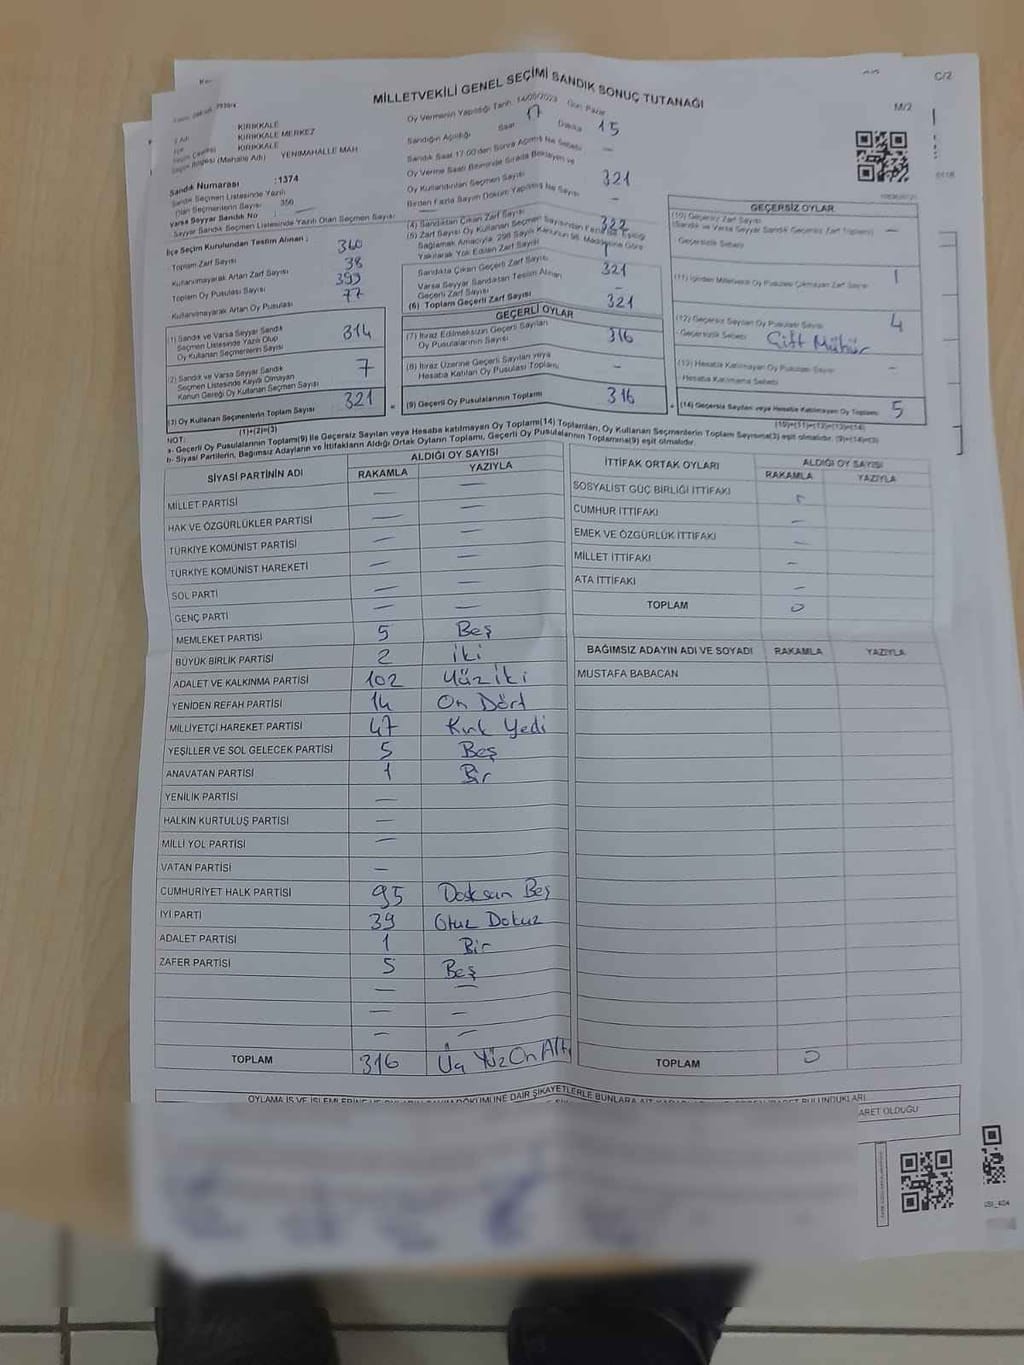 C/2
MİLLETVEKİLİ GENEL SEÇİMİ SANDIK SONUÇ TUTANAĞI
M/2
Oy Vermenin Yapıldığı Tarih: 14/05/2023 Gün Pazar
KIRIKKALE
KIRIKKALE MERKEZ
KIRIKKALE
Seçim Bölgesi (Mahalle Adı) YENİMAHALLE MAH.
Sandığın Açıldığı Saat 17 Dakika 15
Sandık Saat 17:00'den Sonra Açılmış İse Sebebi —
Oy Verme Saati Bitiminde Sırada Bekleyen ve
Oy Kullandırılan Seçmen Sayısı 321
Birden Fazla Sayım Döküm Yapılmış İse Sayısı —
Sandık Numarası :1374
Sandık Seçmen Listesinde Yazılı
Olan Seçmenlerin Sayısı 350
varsa Seyyar Sandık No
Seyyar Sandık Seçmen Listesinde Yazılı Olan Seçmen Sayısı
İlçe Seçim Kurulundan Teslim Alınan :
Toplam Zarf Sayısı 360
Kullanılmayarak Artan Zarf Sayısı 38
Toplam Oy Pusulası Sayısı 399
Kullanılmayarak Artan Oy Pusulası 77
(4) Sandıktan Çıkan Zarf Sayısı 322
(5) Zarf Sayısı Oy Kullanan Seçmen Sayısından Fazla İse, Eşitliği
Sağlamak Amacıyla, 298 Sayılı Kanunun 98. Maddesine Göre
Yakılarak Yok Edilen Zarf Sayısı 1
Sandıkta Çıkan Geçerli Zarf Sayısı 321
Varsa Seyyar Sandıktan Teslim Alınan
Geçerli Zarf Sayısı —
(6) Toplam Geçerli Zarf Sayısı 321
(1) Sandık ve Varsa Seyyar Sandık
Seçmen Listesinde Yazılı Olup
Oy Kullanan Seçmenlerin Sayısı 314
(2) Sandık ve Varsa Seyyar Sandık
Seçmen Listesinde Kaydı Olmayan
Kanun Gereği Oy Kullanan Seçmen Sayısı 7
(3) Oy Kullanan Seçmenlerin Toplam Sayısı 321
(1)+(2)=(3)
GEÇERLİ OYLAR
(7) İtiraz Edilmeksizin Geçerli Sayılan
Oy Pusulalarının Sayısı 316
(8) İtiraz Üzerine Geçerli Sayılan veya
Hesaba Katılan Oy Pusulası Toplamı —
= (9) Geçerli Oy Pusulalarının Toplamı 316
GEÇERSİZ OYLAR
(10) Geçersiz Zarf Sayısı
(Sandık ve Varsa Seyyar Sandık Geçersiz Zarf Toplamı) —
- Geçersizlik Sebebi
(11) İçinden Milletvekili Oy Pusulası Çıkmayan Zarf Sayısı 1
(12) Geçersiz Sayılan Oy Pusulası Sayısı 4
- Geçersizlik Sebebi Çift Mühür
(13) Hesaba Katılmayan Oy Pusulası Sayısı —
- Hesaba Katılmama Sebebi
+ (14) Geçersiz Sayılan veya Hesaba Katılmayan Oy Toplamı 5
(10)+(11)+(12)+(13)=(14)
NOT:
a- Geçerli Oy Pusulalarının Toplamı(9) ile Geçersiz Sayılan veya Hesaba katılmayan Oy Toplamı(14) Toplamları, Oy Kullanan Seçmenlerin Toplam Sayısına(3) eşit olmalıdır. (9)+(14)=(3)
b- Siyasi Partilerin, Bağımsız Adayların ve İttifakların Aldığı Ortak Oyların Toplamı, Geçerli Oy Pusulalarının Toplamına(9) eşit olmalıdır.
SİYASİ PARTİNİN ADI ALDIĞI OY SAYISI
RAKAMLA YAZIYLA
MİLLET PARTİSİ — —
HAK VE ÖZGÜRLÜKLER PARTİSİ — —
TÜRKİYE KOMÜNİST PARTİSİ — —
TÜRKİYE KOMÜNİST HAREKETİ — —
SOL PARTİ — —
GENÇ PARTİ — —
MEMLEKET PARTİSİ 5 Beş
BÜYÜK BİRLİK PARTİSİ 2 iki
ADALET VE KALKINMA PARTİSİ 102 Yüz iki
YENİDEN REFAH PARTİSİ 14 On Dört
MİLLİYETÇİ HAREKET PARTİSİ 47 Kırk Yedi
YEŞİLLER VE SOL GELECEK PARTİSİ 5 Beş
ANAVATAN PARTİSİ 1 Bir
YENİLİK PARTİSİ —
HALKIN KURTULUŞ PARTİSİ —
MİLLİ YOL PARTİSİ —
VATAN PARTİSİ —
CUMHURİYET HALK PARTİSİ 95 Doksan Beş
İYİ PARTİ 39 Otuz Dokuz
ADALET PARTİSİ 1 Bir
ZAFER PARTİSİ 5 Beş
— —
— —
— —
TOPLAM 316 Üç Yüz On Altı
İTTİFAK ORTAK OYLARI ALDIĞI OY SAYISI
RAKAMLA YAZIYLA
SOSYALİST GÜÇ BİRLİĞİ İTTİFAKI
CUMHUR İTTİFAKI —
EMEK VE ÖZGÜRLÜK İTTİFAKI —
MİLLET İTTİFAKI —
ATA İTTİFAKI —
TOPLAM 0
BAĞIMSIZ ADAYIN ADI VE SOYADI RAKAMLA YAZIYLA
MUSTAFA BABACAN
TOPLAM 0
OYLAMA İŞ VE İŞLEMLERİNE DAİR ŞİKAYETLERLE BUNLARA AİT
ARET OLDUĞU